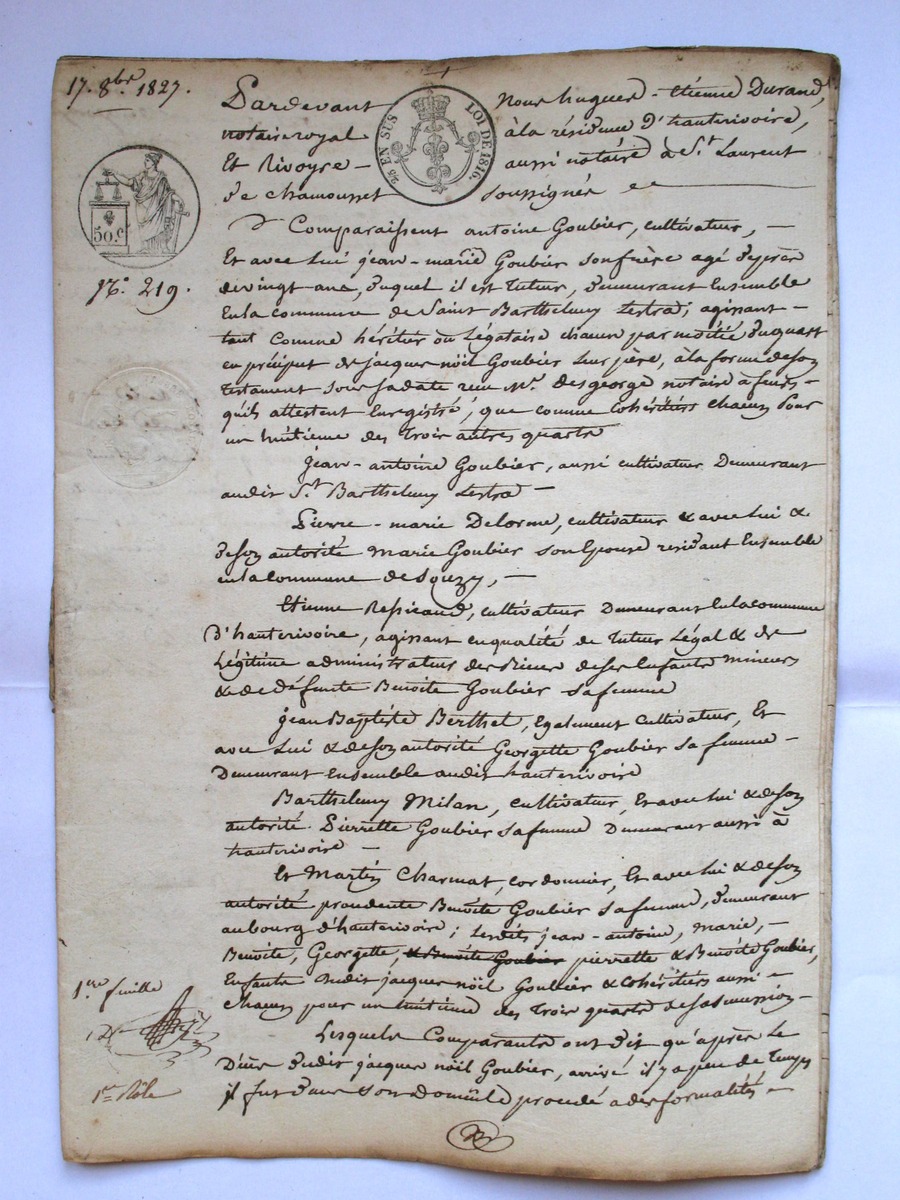 17. 8bre. 1827.
Pardevant Nous hugues-étienne Durand,
notaire royal à la résidence d'hauterivoire,
Et Rivoyre - aussi notaire à St. Laurent
de chamousset soussignés
25 EN SUS LOI DE 1816.
50.c
No. 219.
Comparaissent antoine Goubier, cultivateur, -
Et avec Lui jean-marie Goubier son frère agé d'après
de vingt ans, duquel il est tuteur, demeurant Ensemble
En la commune de Saint Barthelemy Lestra; agissant -
tant Comme héritier ou Légataire chacun par moitié du quart
en préciput de jacques nöel Goubier leur père, à la forme de son
testament sous sa date reçu Me. desgeorge notaire à feurs -
qu'ils attestent Enregistré, que comme Cohéritiers chacun Pour
un huitième des Trois autres quarts
jean-antoine Goubier, aussi cultivateur Demeurant
audit St. Barthelemy Lestra -
Pierre-marie Delorme, cultivateur & avec Lui &
de son autorité Marie Goubier son Epouse residant Ensemble
en la Commune de Souzy, -
Etienne Ressicaud, cultivateur Demeurant En la commune
D'hauterivoire, agissant en qualité de tuteur Légal & de
Légitime administrateur des Biens de ses Enfants mineurs
& de défunte Benoite Goubier sa femme
jean Baptiste Berthet, Egalement Cultivateur, Et
avec Lui & de son autorité Georgette Goubier sa femme -
Demeurant Ensemble audit hauterivoire
Barthelemy Milan, cultivateur, Et avec lui & de son
autorité Pierrette Goubier sa femme Demeurant aussi à
hauterivoire -
Et Martin Charmat, cordonnier, Et avec lui & de son
autorité procedente Benoite Goubier sa femme, demeurant
au bourg d'hauterivoire; Lesdits jean-antoine, marie, -
Benoite, Georgette, & Benoite Goubier pierrette & Benoite Goubier,
Enfants dudit jacques nöel Goubier & Cohéritiers aussi -
chacun pour un huitième des Trois quarts de sa succession -
Lesquels Comparants ont dit qu'après le
Décès dudit jacques nöel Goubier, arrivé il y a peu de temps
il fut dans son domicile procedé a des formalités -
1ere feuille
1er Rôle